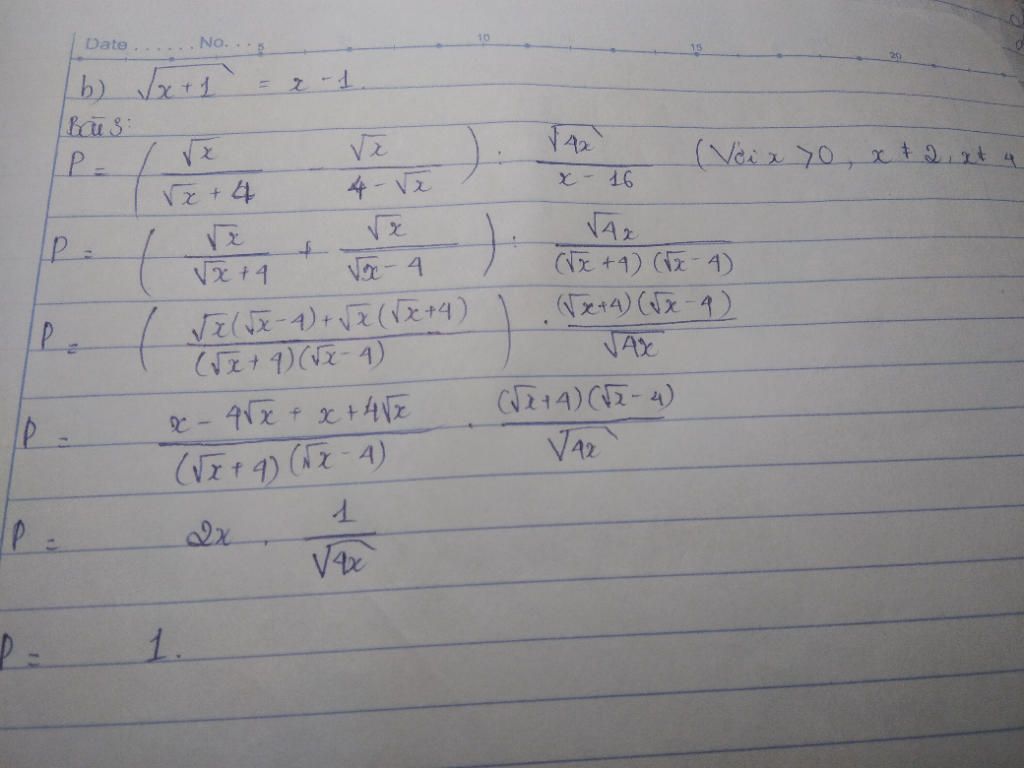 Date ...... No. ... 5 10 15 20
b) √(x+1) = x - 1.
Bài 3:
P = ( √x / (√x + 4) - √x / (4 - √x) ) : √4x / (x - 16) (Với x > 0, x ≠ 2, x ≠ 4
P = ( √x / (√x + 4) + √x / (√x - 4) ) : √4x / ((√x + 4)(√x - 4))
P = ( (√x(√x - 4) + √x(√x + 4)) / ((√x + 4)(√x - 4)) ) . ((√x + 4)(√x - 4)) / √4x
P = (x - 4√x + x + 4√x) / ((√x + 4)(√x - 4)) . ((√x + 4)(√x - 4)) / √4x
P = 2x . 1 / √4x
P = 1.